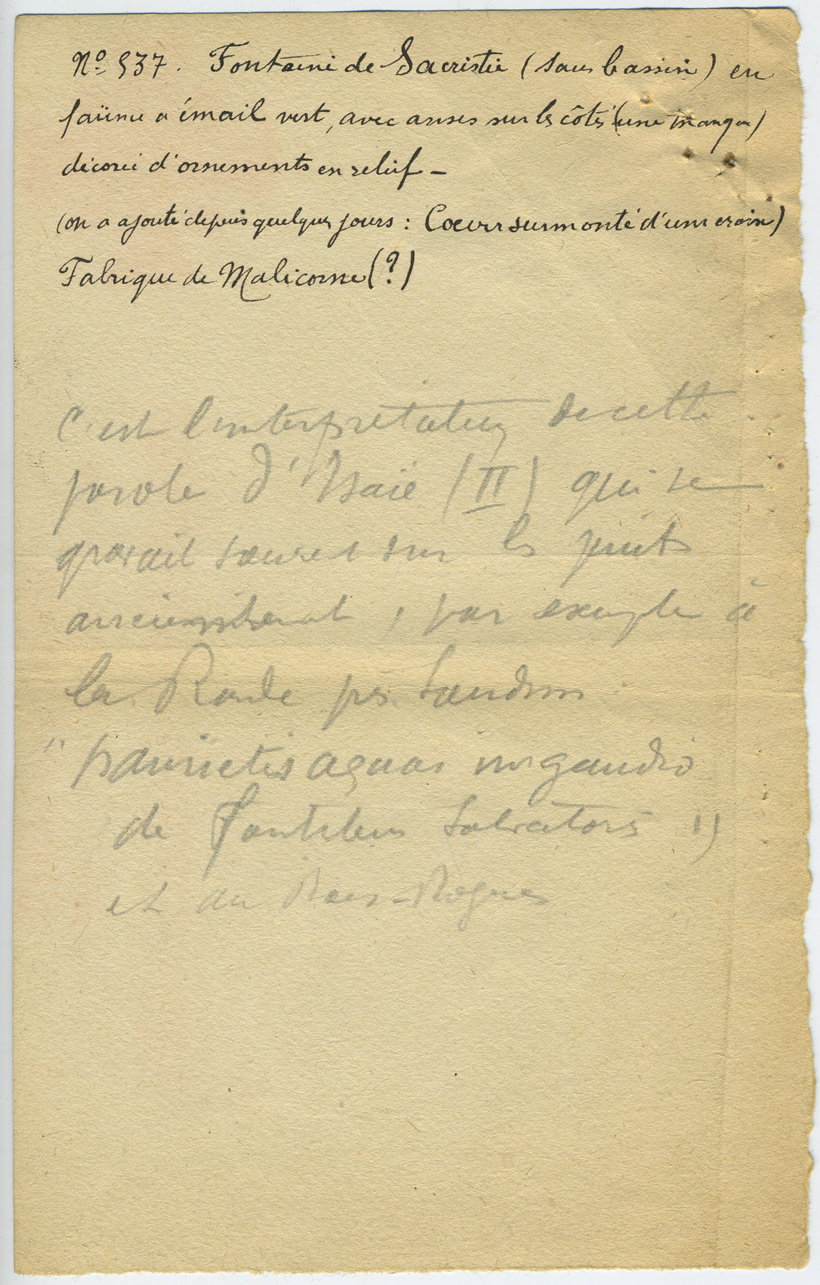 Nº 537. Fontaine de Sacristie (sans bassin) en
faïence à émail vert, avec anses sur les côtés (une manque)
décorée d'ornements en relief –
(on a ajouté depuis quelques jours : Cœur surmonté d'une croix)
Fabrique de Malicorne (?)
C'est l'interprétation de cette
parole d'Isaïe (II) qui se
gravait souvent sur les puits
anciennement, par exemple à
la
"haurietis aquas in gaudio
de fontibus Salvatoris"
et au